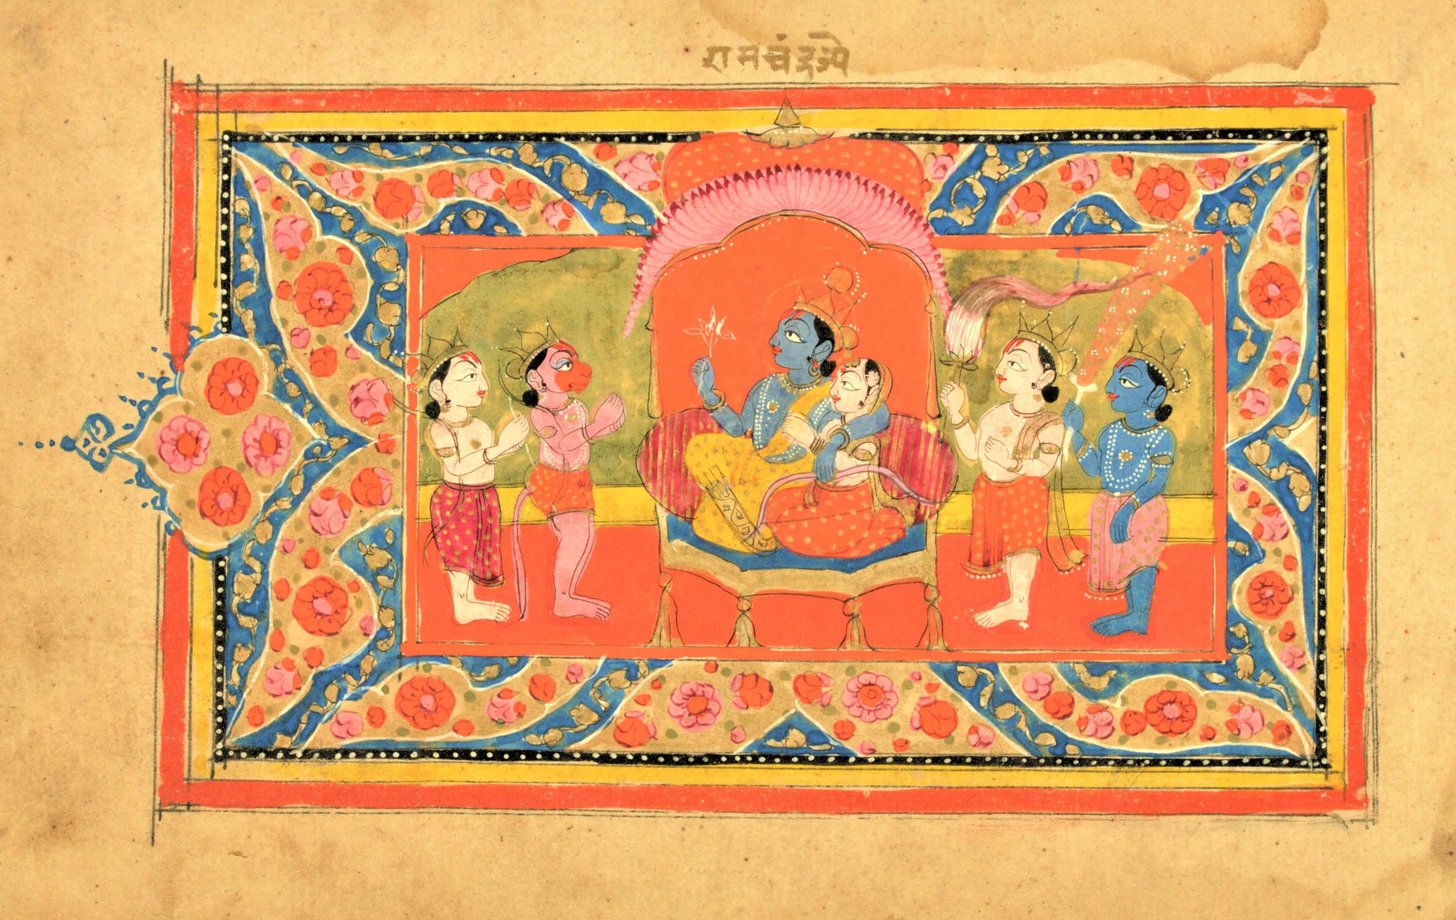 रामचंद्रज्ये